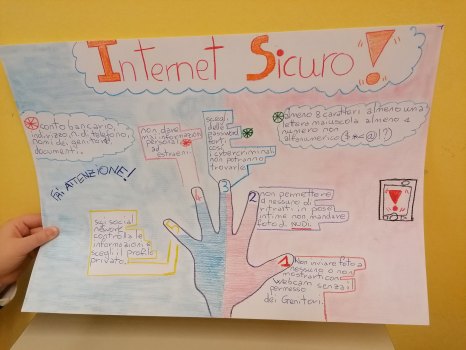 Internet Sicuro!
conto bancario
indirizzo, n. di telefono,
nomi dei genitori,
documenti.
FAI ATTENZIONE!
non dare
mai informazioni
personali
ad
estranei.
scegli
delle
password
forti
così
i cybercriminali
non potranno
trovarle
almeno 8 caratteri almeno una
lettera maiuscola almeno 1
numero non
alfanumerico
5
4
3
2
1
sui social
network
controlla le
informazioni e
scegli il profilo
privato.
non permettere
a nessuno di
ritrarti in pose
intime non mandare
foto di NUDI.
!
Non inviare foto a
nessuno o non
mostrarti con
webcam senza il
permesso
dei Genitori.